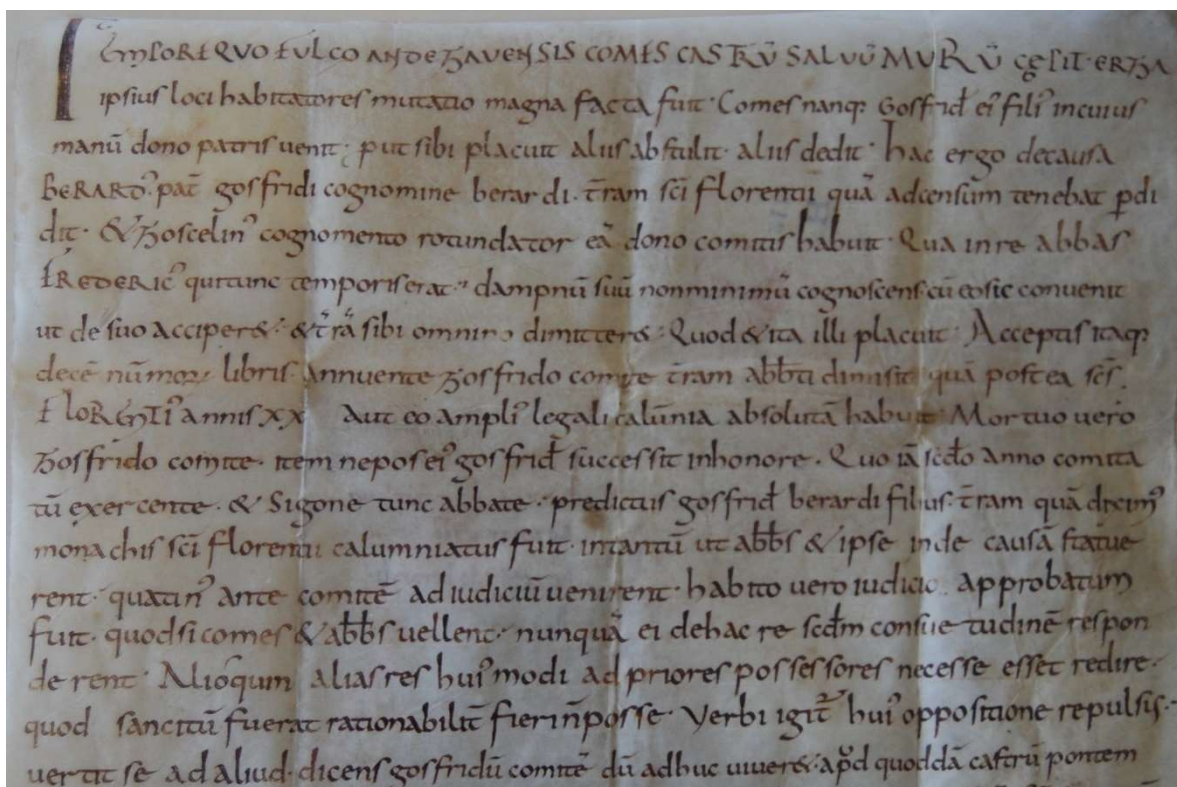 IN TEMPORE QUO FULCO ANDEGAVENSIS COMES CASTRŨ SALVŨ MURŨ CĘPIT· ERGA
ipsius loci habitatores mutatio magna facta fuit· Comes nanq; Gosfrid̄ ei᾿ fili᾿ in cuius
manū dono patris venit· put sibi placuit aliis abstulit· aliis dedit· hac ergo de causa
BERARD᾿ pat̄ gosfridi cognomine berardi· t̄ram sc̄i florentii quā ad censum tenebat p̱di
dit· & Goscelin᾿ cognomento rotundator eā dono comitis habuit· Qua in re abbas
FREDERIC᾿ qui tunc temporis erat· dampnū suū non minimū cognoscens· cū eo sic convenit
ut de suo acciper&· & t̄rā sibi omnino dimitter&· Quod & ita illi placuit· Acceptis itaq;
decē nūmoꝝ libris· Annuente gosfrido comite t̄ram abb̄ti dimisit quā postea sc̄s
FLORENTI᾿ annis xx Aut eo ampli᾿ legali calūnia absolutā habuit· Mortuo vero
Gosfrido comite· item nepos ei᾿ gosfrid̄ successit in honore· Quo iā sc̄do anno comita
tū exercente· & Sigone tunc abbate· predictus gosfrid̄ berardi filius· t̄ram quā dixim᾿
monachis sc̄i florentii calumniatus fuit· in tantū ut abb̄s & ipse inde causā statue
rent· quatin᾿ ante comitē ad iudiciū venirent· habito vero iudicio approbatum
fuit· quod si comes & abb̄s vellent· nunquā ei de hac re scd̄m consuetudinē respon
derent· Alioquin alias res hui᾿modi ad priores possessores necesse esset redire·
quod sancitū fuerat rationabilit̄ fieri n̄ posse· Verbi igit̄ hui᾿ oppositione repulsis·
vertit se ad aliud· dicens gosfridū comitē dū adhuc viver&· apͦd quoddā castrū pontem